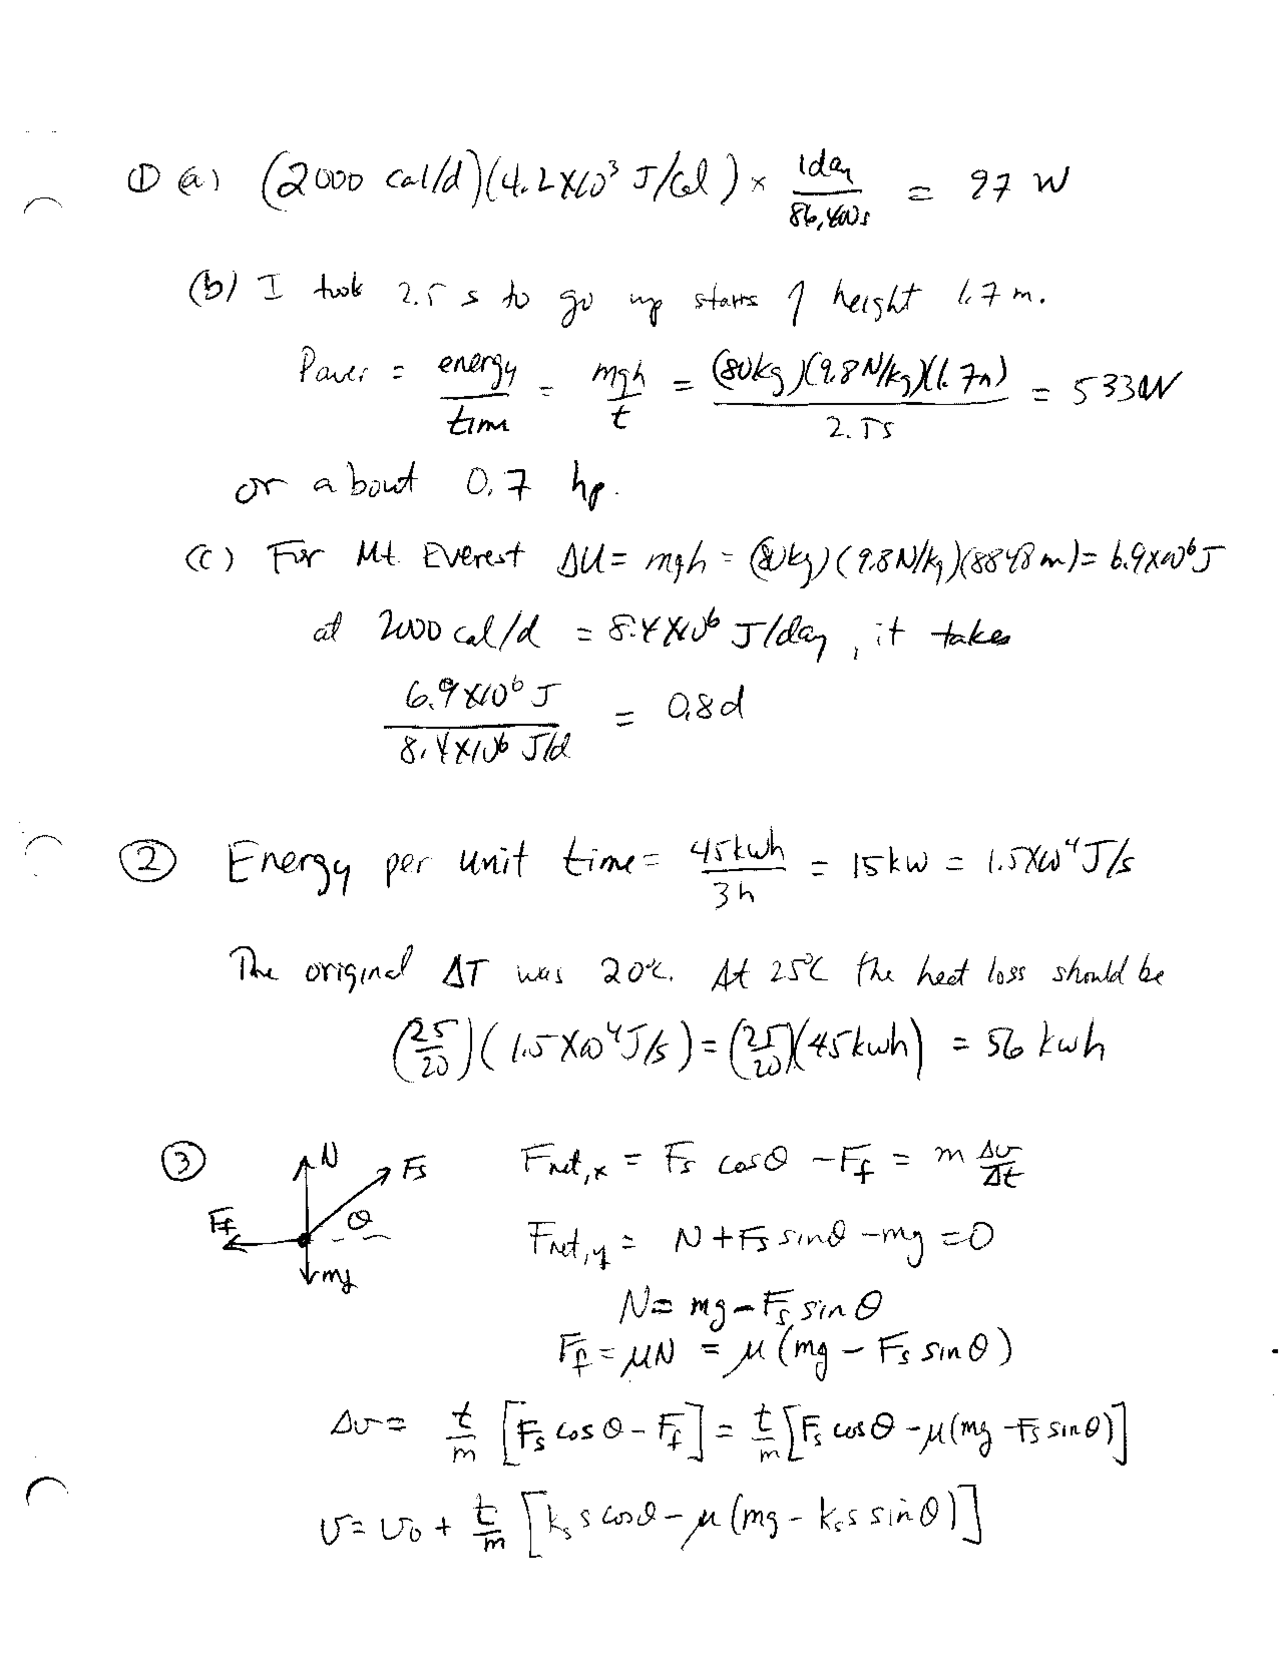 ① (a) (2000 cal/d)(4.2×10³ J/Cal) × 1day/86,400s = 97 W
(b) I took 2.5 s to go up stairs of height 1.7 m.
Power = energy/time = mgh/t = (80kg)(9.8N/kg)(1.7m)/2.5s = 533W
or about 0.7 hp.
(c) For Mt. Everest ΔU = mgh = (80kg)(9.8N/kg)(8848m) = 6.9×10⁶J
at 2000 cal/d = 8.4×10⁶ J/day, it takes
6.9×10⁶ J/8.4×10⁶ J/d = 0.8d
② Energy per unit time = 45kwh/3h = 15kw = 1.5×10⁴ J/s
The original ΔT was 20°C. At 25°C the heat loss should be
(25/20)(1.5×10⁴J/s) = (25/20)(45kwh) = 56 kwh
③ N Fs Ff θ mg
Fnet,x = Fs cosθ - Ff = m Δv/Δt
Fnet,y = N + Fs sinθ - mg = 0
N = mg - Fs sinθ
Ff = μN = μ(mg - Fs sinθ)
Δv = t/m [Fs cosθ - Ff] = t/m [Fs cosθ - μ(mg - Fs sinθ)]
v = v₀ + t/m [ks s cosθ - μ(mg - ks s sinθ)]